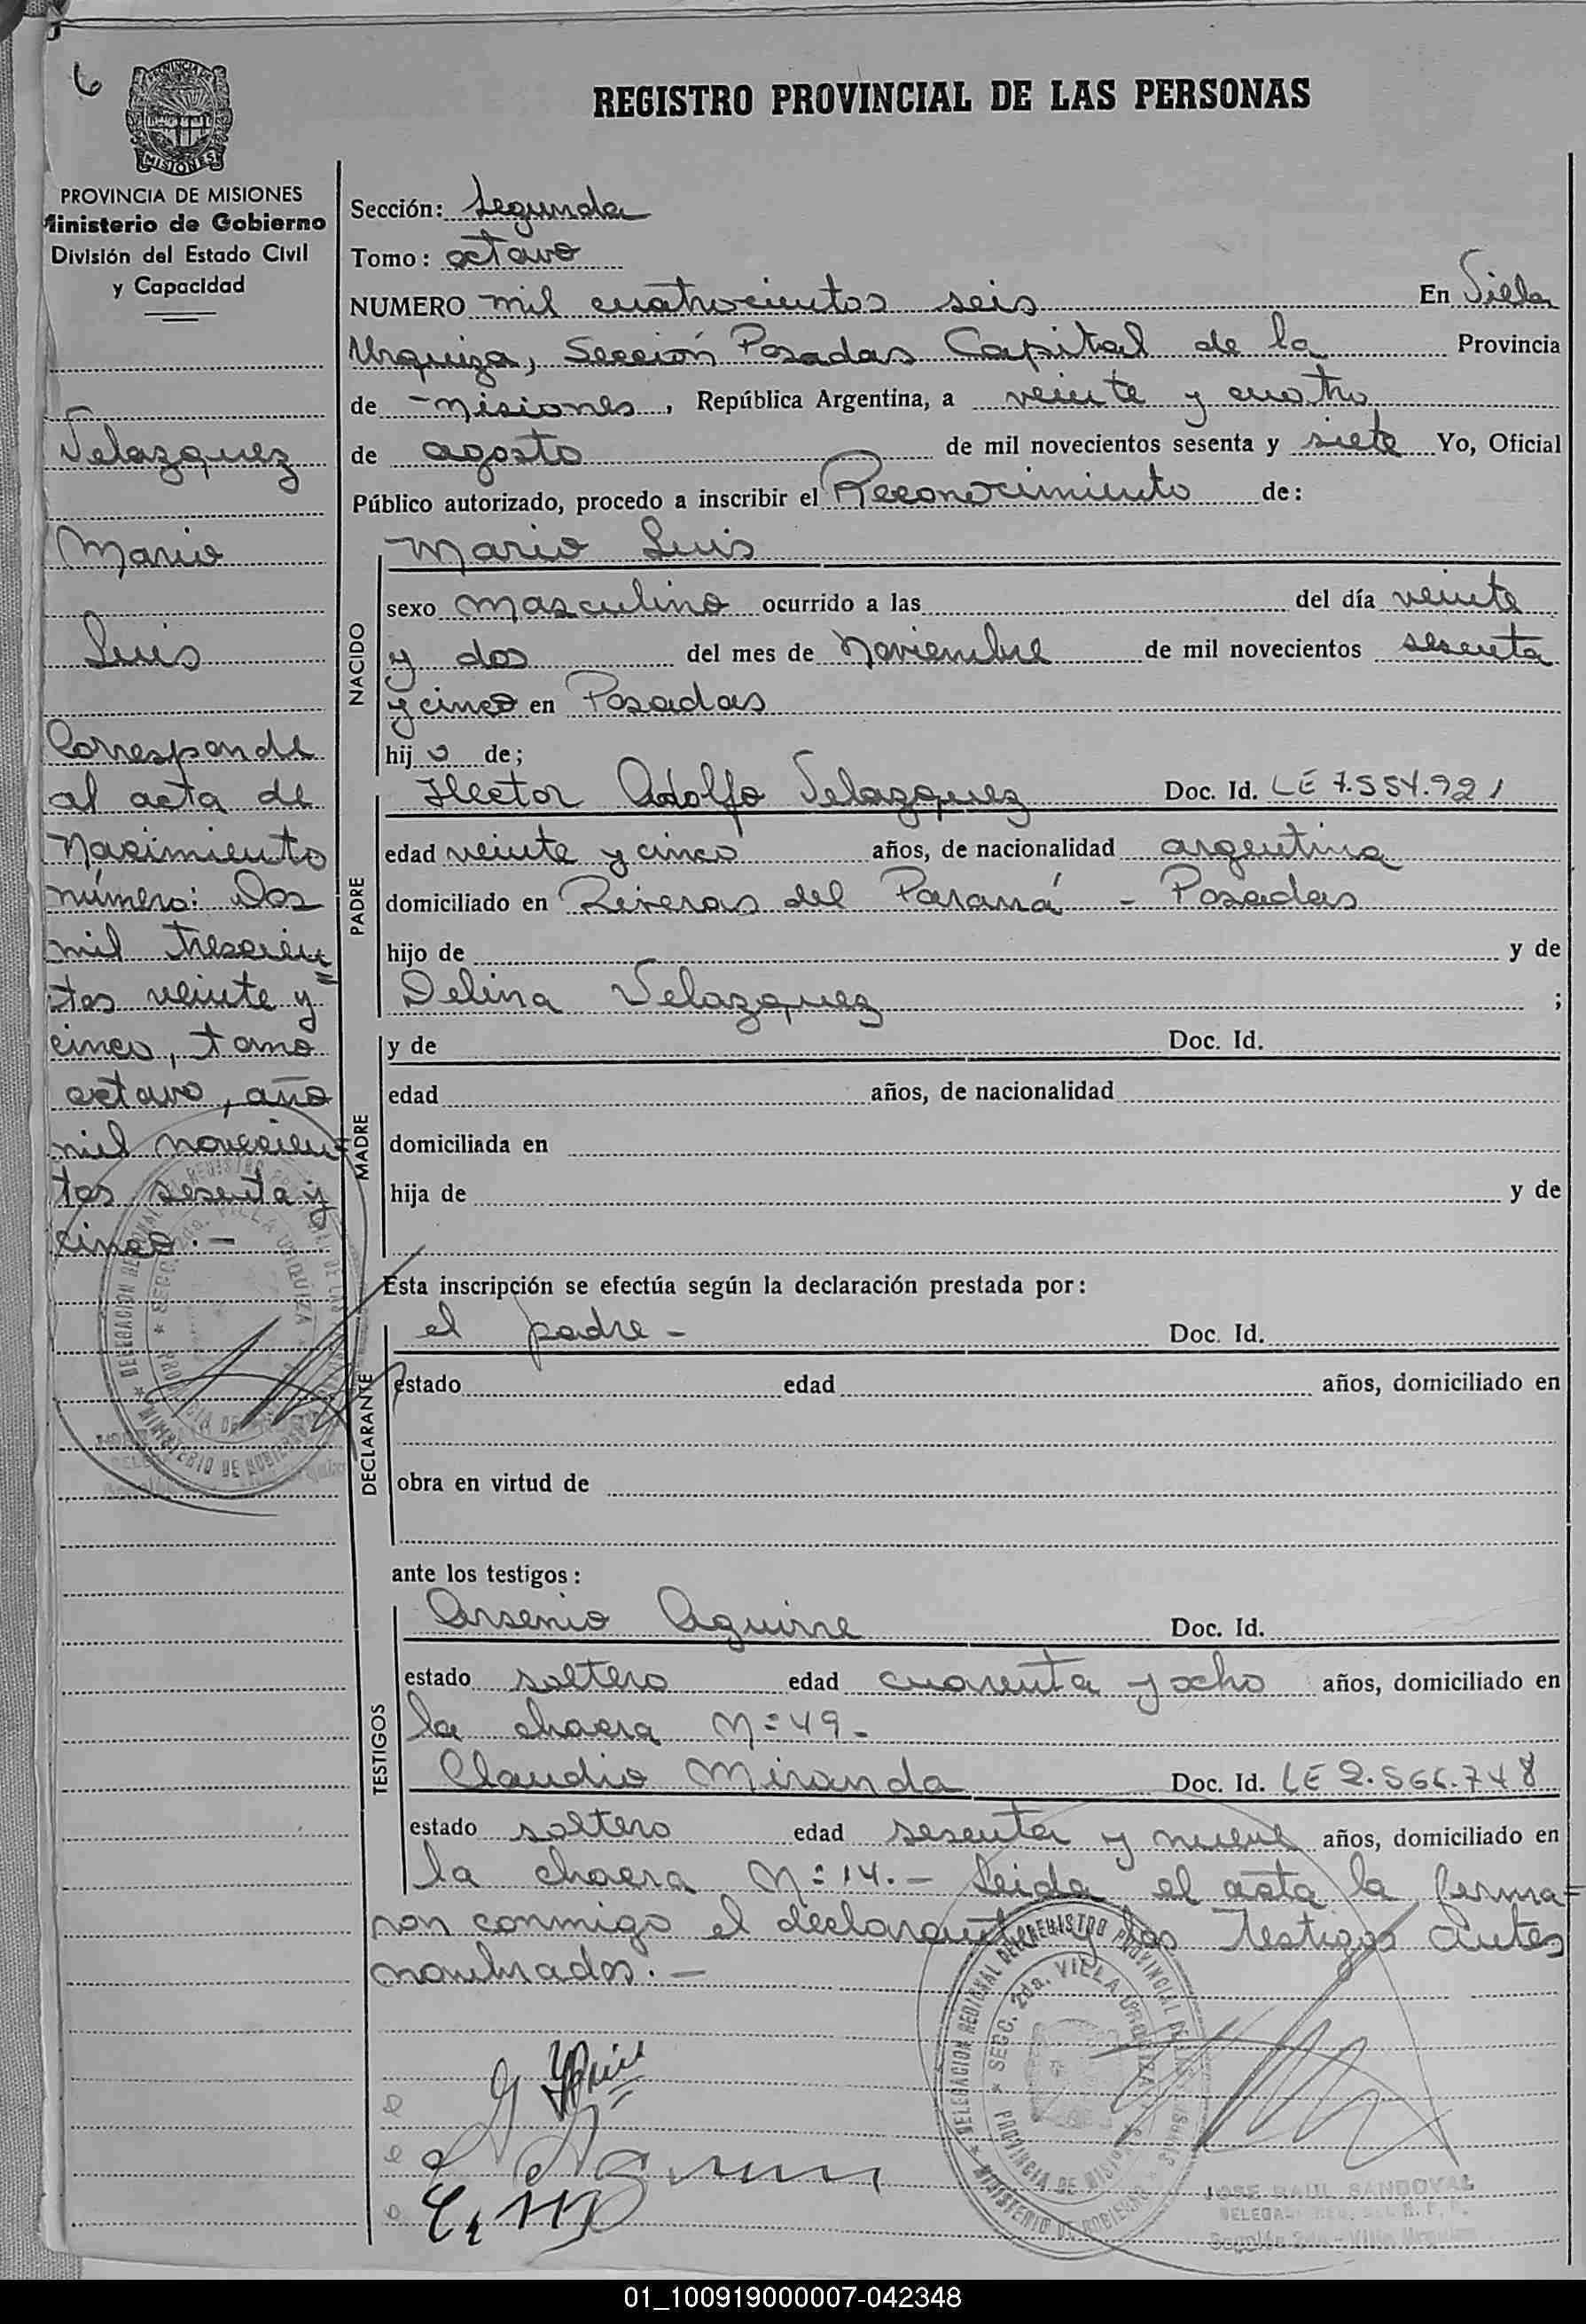 6
PROVINCIA DE MISIONES
MISIONES
PROVINCIA DE MISIONES
Ministerio de Gobierno
División del Estado Civil
y Capacidad
Velazquez
Mario
Luis
Corresponde
al acta de
Nacimiento
número: Dos
mil trescien
tos veinte y=
cinco, tomo
octavo, año
mil novecien=
tos sesenta y
cinco.-
REGISTRO PROVINCIAL DE LAS PERSONAS
Sección: Segunda
Tomo: octavo
NUMERO mil cuatrocientos seis En Villa
Urquiza, Sección Posadas Capital de la Provincia
de -Misiones, República Argentina, a veinte y cuatro
de agosto de mil novecientos sesenta y siete Yo, Oficial
Público autorizado, procedo a inscribir el Reconocimiento de:
NACIDO
Mario Luis
sexo masculino ocurrido a las del día veinte
y dos del mes de Noviembre de mil novecientos sesenta
y cinco en Posadas
hijo de;
PADRE
Hector Adolfo Velazquez Doc. Id. LE 7.554.921
edad veinte y cinco años, de nacionalidad argentina
domiciliado en Riveras del Paraná - Posadas
hijo de y de
Delina Velazquez ;
MADRE
y de Doc. Id.
edad años, de nacionalidad
domiciliada en
hija de y de
Esta inscripción se efectúa según la declaración prestada por:
DECLARANTE
el padre - Doc. Id.
estado edad años, domiciliado en
obra en virtud de
ante los testigos:
TESTIGOS
Arsenio Aguirre Doc. Id.
estado soltero edad cuarenta y ocho años, domiciliado en
la chacra Nº 49-
Claudio Miranda Doc. Id. LE 2.566.748
estado soltero edad sesenta y nueve años, domiciliado en
la chacra Nº 14.- Leida el acta la firma=
ron conmigo el declarante y los testigos antes
nombrados.-
DELEGACION REGIONAL DEL REGISTRO PROVINCIAL DE LAS PERSONAS
SECC. 2da. VILLA URQUIZA
PROVINCIA DE MISIONES
MINISTERIO DE GOBIERNO
JOSE RAUL SANDOVAL
Sección 2da - Villa Urquiza
01_100919000007-042348